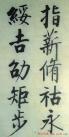 指薪脩祜永
綏吉劭矩步